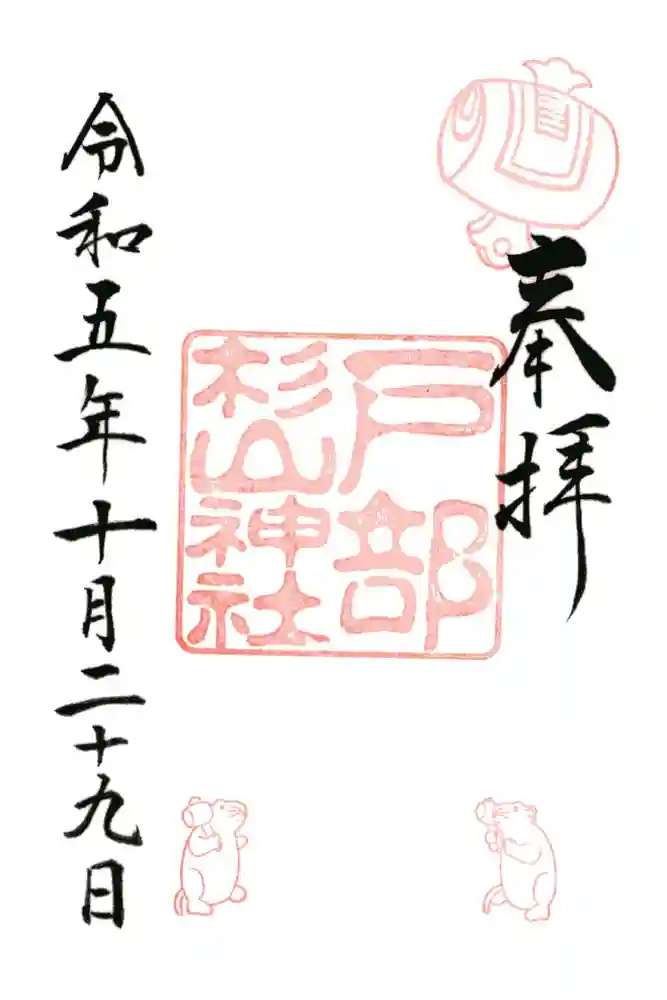 奉拝
戸部
杉山
神社
令和五年十月二十九日